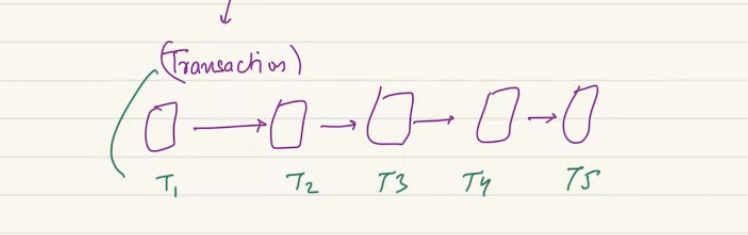 (Transaction)
T1 T2 T3 T4 T5